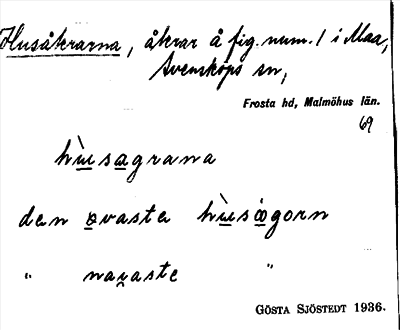 Husåkrarna, åkrar å fig. num. 1 i Maa,
Svensköps sn,
Frosta hd, Malmöhus län.
69
hùsagrana
den øvasta hùsågorn
" navasta "
GÖSTA SJÖSTEDT 1936.